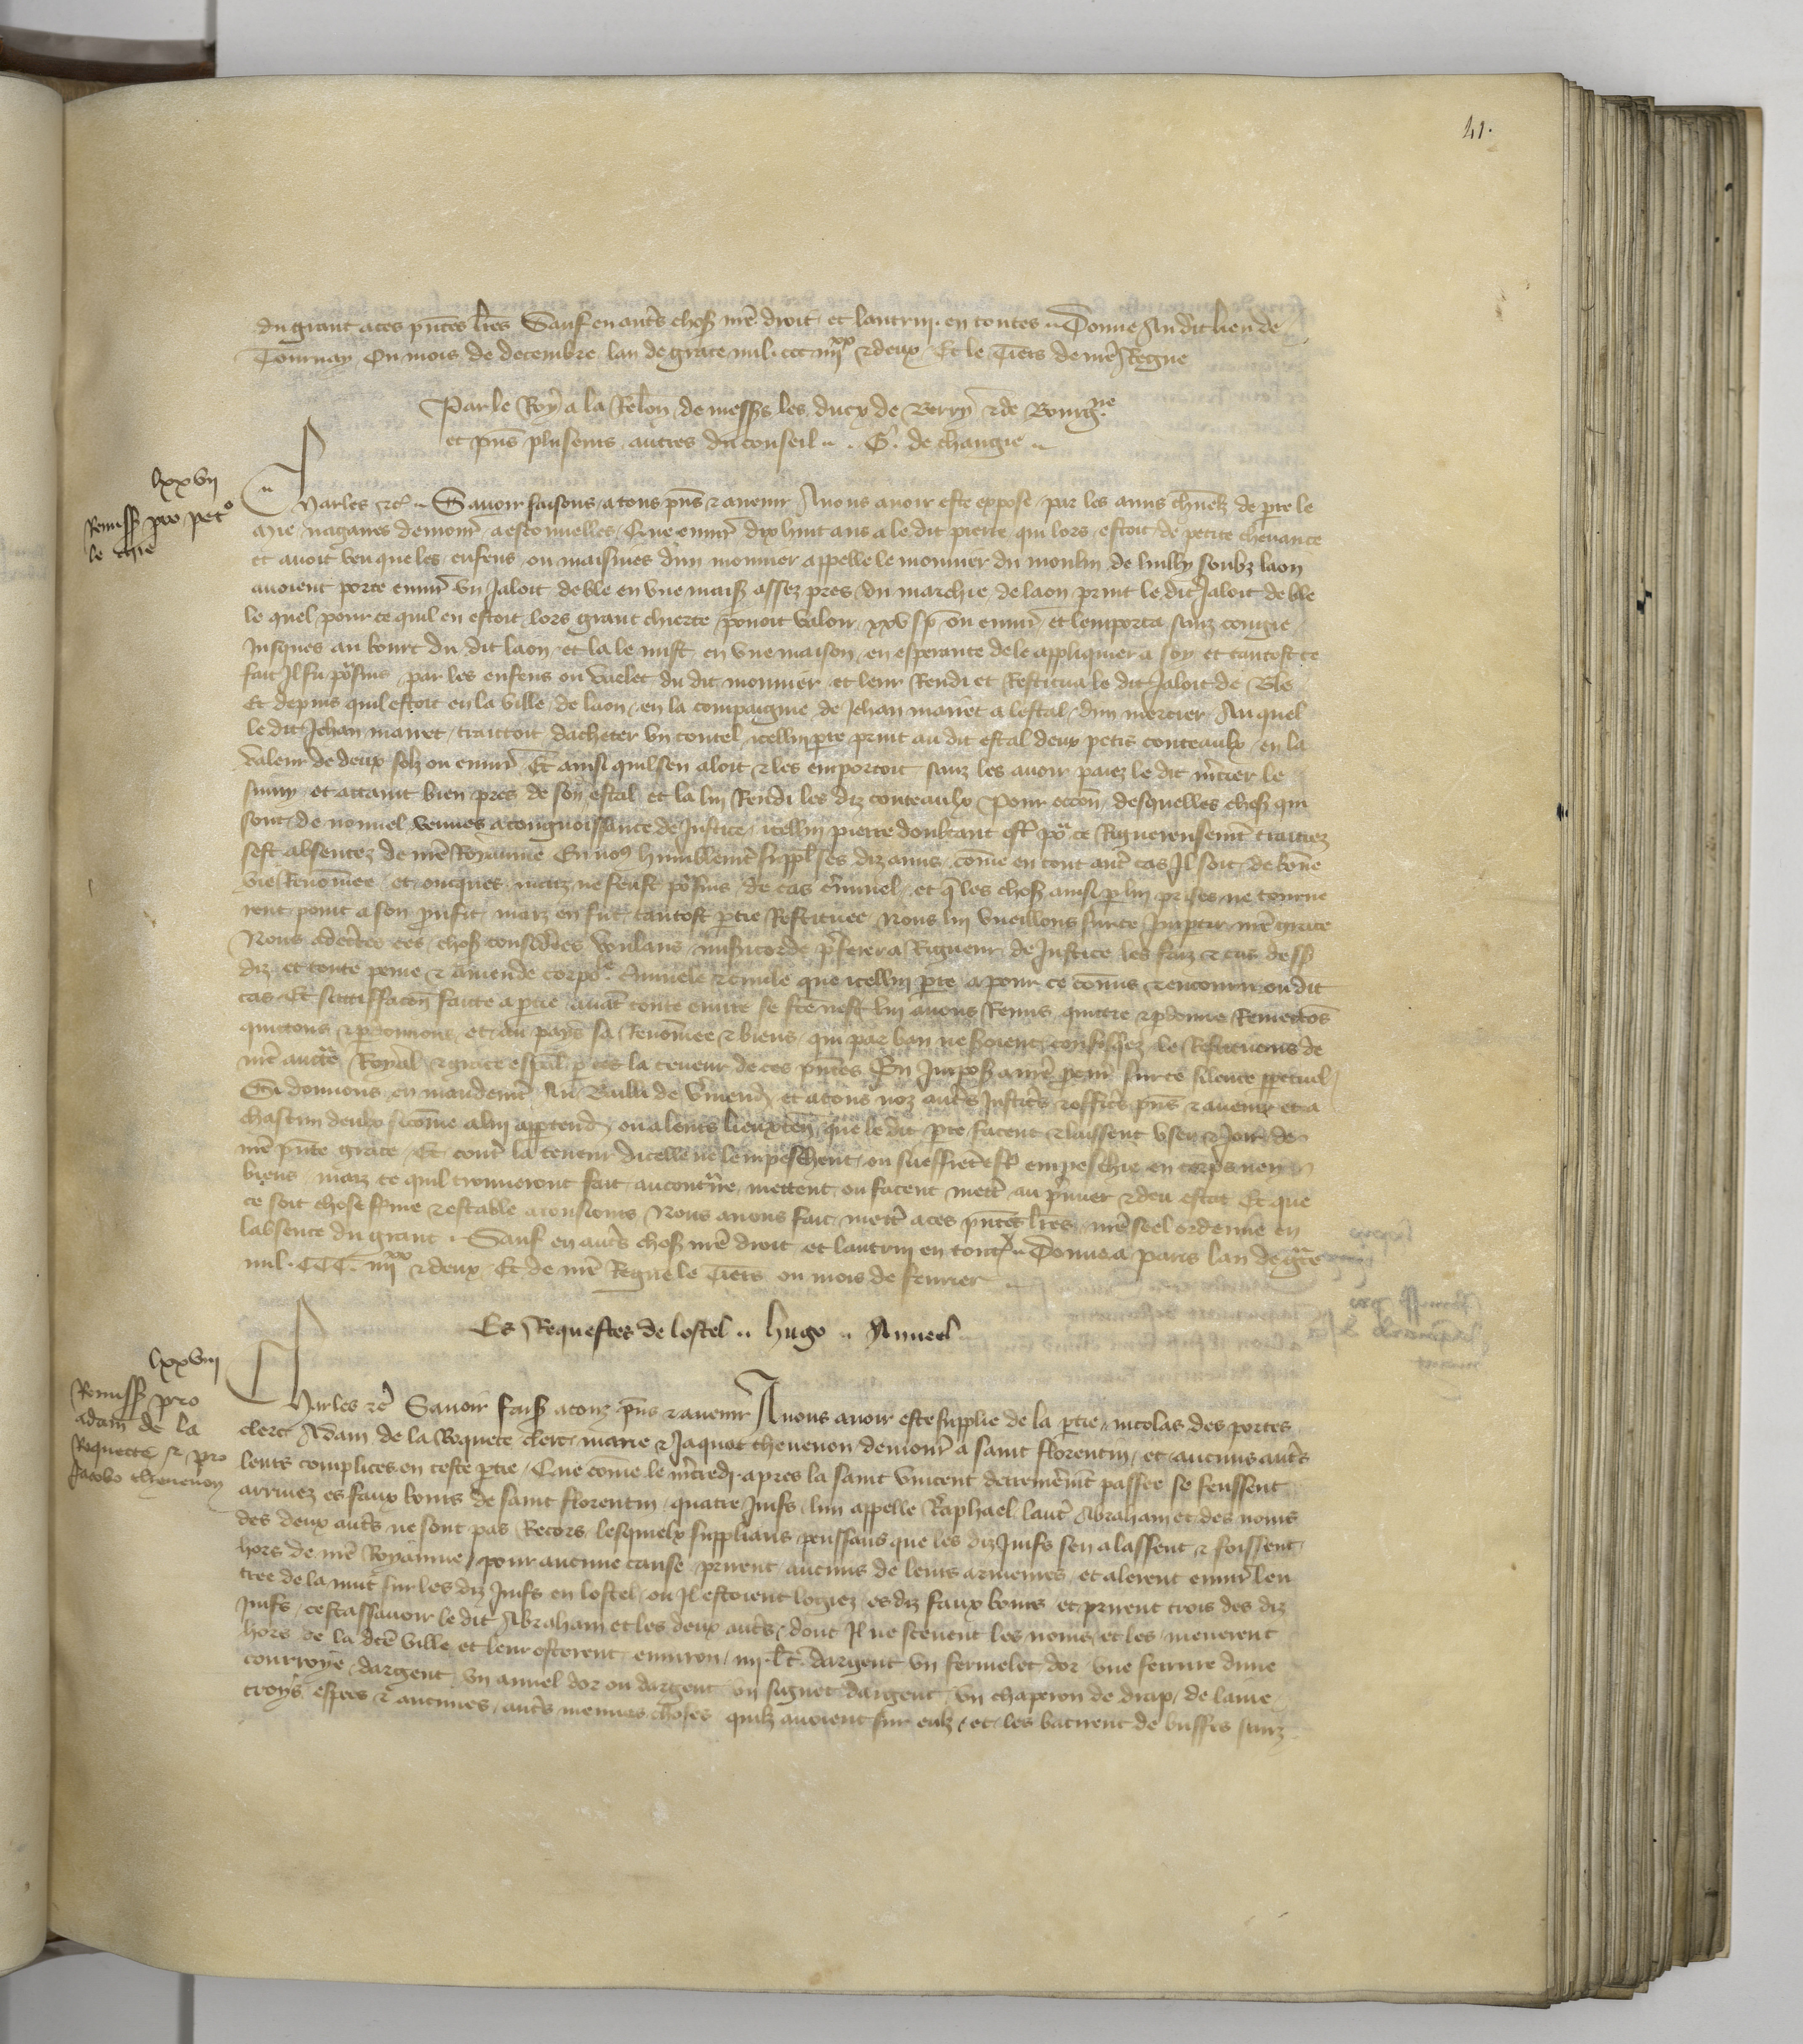 41.
du grant a ces pntes lres Sauf en autres chos nre droit et lautrui en toutes Donne au dit lieu de
Tournay Ou mois de decembre lan de grace mil ccc iiiixx et deux Et le Tiers de nre Regne
Par le Roy a la Relon de messrs les ducx de Berry et de Bourgne
et pns pluseurs autres du conseil G. de changie
lxxvii
Remiss pro petro
le
Charles etc Savoir faisons a tous pns et avenir A nous avoir este expose par les amis charnelz de pre le
demour a Que environ dix huit ans a le dit pierre qui lors estoit de petite chevance
et avoit veu que les enfens ou maisnies dun monnier appelle le monnier du moulin de luilly soubz laon
avoient porte environ un Jaloit de ble en une mais assez pres du marchie de laon print le dit Jaloit de ble
le quel pour ce quil en estoit lors grant chierte povoit valoir xxv s p ou environ et lemporta sanz congie
Jusques au bourc du dit laon et la le mist en une maison en esperance de le appliquier a soy et tantost ce
fait Il fu poursuis par les enfens ou varlet du dit monnier et leur Rendi et Restitua le dit Jaloit de Ble
Et depuis quil estoit en la ville de laon en la compaignie de Jehan maret a lestal dun mercier Au quel
le dit Jehan maret traittoit dacheter un coutel icellui pre print au dit estal deux petis couteaulx en la
valeur de deux solz ou environ Et ainsi quil sen aloit et les emportoit sanz les avoir paiez le dit mercier le
suivy et attaint bien pres de son estal et la lui Rendi les diz couteaulx Pour occon desquelles chos qui
sont de nouvel venues a congnoissance de Justice icellui pierre doubtant estre pour ce Riguereusemt traittiez
sest absentez de nre Royaume En nous humblemt suppl ses diz amis come en tout autre cas Il soit de bone
vie Renomee et oncques mais ne feust poursuis de cas criminel et que les chos ainsi par lui prises ne tourne
rent point a son prufit maiz en fut tantost partie Restituee Nous lui vueillons sur ce Impartir nre grace
Nous adecertes ces chos considerees voulans misericorde preferer a Rigueur de Justice les faiz et cas dess
diz et toute peine et amende corporele criminele et civile que icellui pre a pour ce comis et encouru ou dit
cas Et satisfacon faite a partie avant toute euvre se fce nest lui avons Remis quitte et pardonne Remettons
quittons et pardonnons et au pays sa Renomee et biens qui par ban ne soient confisquez le Restituons de
nre auctorite Royal et grace espal par la teneur de ces pntes En Impos a nre procureur sur ce silence perpetuel
Si donnons en mandemt Au Bailli de Vermend et a tous noz autres Justiciers et officiers pns et avenir et a
chascun deulx sicome a lui appartend ou a leurs lieuxten que le dit pre facent et laissent user et Joir de
nre pnte grace Et contre la teneur dicelle ne lempeschent ou sueffrent estre empeschie en corps ne en
biens maiz ce quil trouveront fait au contraire mettent ou facent mettre au premier et deu estat Et que
ce soit chose ferme et estable a tousiours Nous avons fait mettre a ces pntes lres nre seel ordenne en
labsence du grant Sauf en autres chos nre droit et lautrui en toutes Donne a paris lan de grace
mil CCC iiiixx et deux Et de nre Regne le Tiers ou mois de fevrier
Es Requestes de lostel hugo
lxxviii
Remiss pro
adam de la
Roquette et pro
Jacobo thevenon
Charles etc Savoir fais a touz pns et avenir A nous avoir este supplie de la partie nicolas des portes
clerc Adam de la Roquete clerc marie et Jaquot thevenon demour a saint florentin et aucuns autres
leurs complices en ceste partie Que come le mercredi apres la saint vincent derrenieremt passee se feussent
arrivez es faux bours de saint florentin quatre Juifs lun appelle Raphael lautre Abraham et des noms
des deux autres ne sont pas Recors lesquelx supplians penssans que les diz Juifs sen alassent et foissent
hors de nre Royaume pour aucune cause prirent aucuns de leurs armeures et alerent environ len
tree de la nuit sur les diz Juifs en lostel ou Il estoient logiez es diz faux bours et prirent trois des diz
Juifs cestassavoir le dit Abraham et les deux autres dont Il ne scevent les noms et les menerent
hors de la dce ville et leur osterent environ dargent un fermelet dor une ferrure dune
courroye dargent un annel dor ou dargent un signet dargent un chaperon de drap de laine
troys espees et aucunes autres menues choses quilz avoient sur eulx et les batirent de buffes sanz